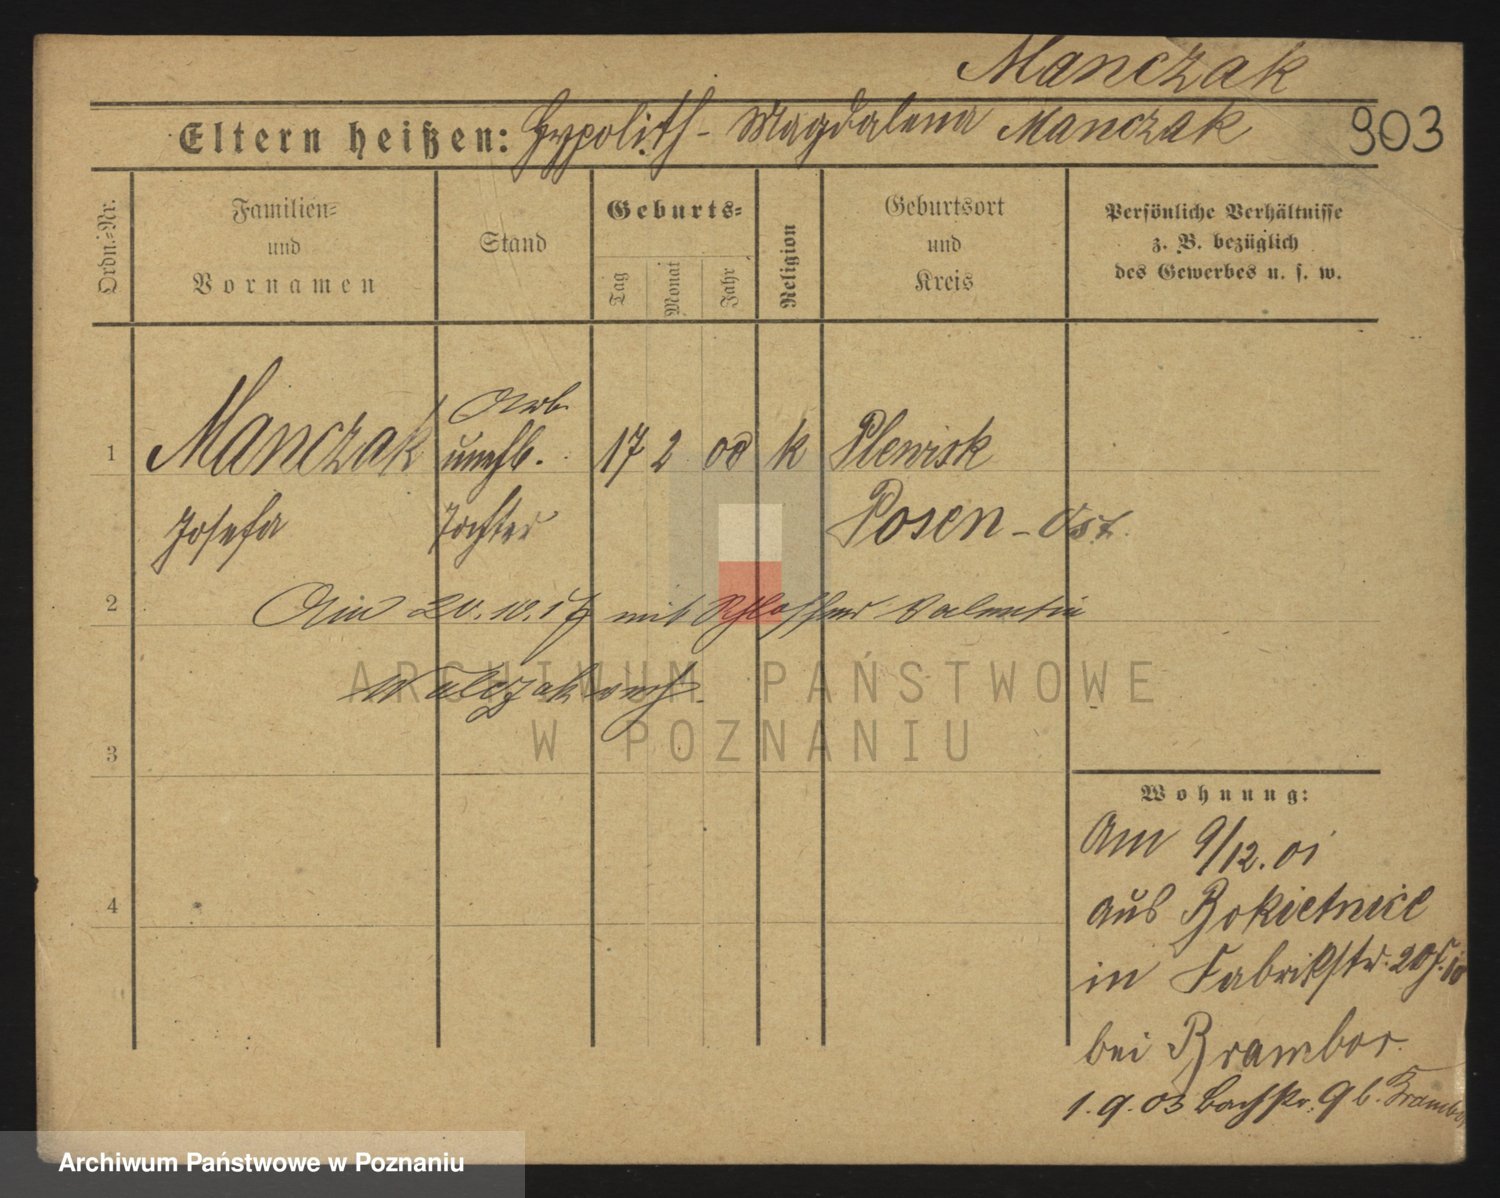 Manczak
Eltern heißen: Hypolith - Magdalena Manczak 903
Ordn.-Nr.
Familien-
und
Vornamen
Stand
Geburts-
Tag
Monat
Jahr
Religion
Geburtsort
und
Kreis
Persönliche Verhältnisse
z. B. bezüglich
des Gewerbes u. s. w.
Arb.
1 Manczak unehl. 17 2 00 k Plewisk
Josefa Tochter Posen - Ost.
2 Am 20.10.17 mit Schlosser Valentin
Walczak verh.
ARCHIWUM PAŃSTWOWE
W POZNANIU
3
Wohnung:
Am 9/12.01
4
aus Rokietnice
in Fabrikstr. 20
bei Brambor.
1.9.03 Bachstr. 9 b. Brambor
Archiwum Państwowe w Poznaniu